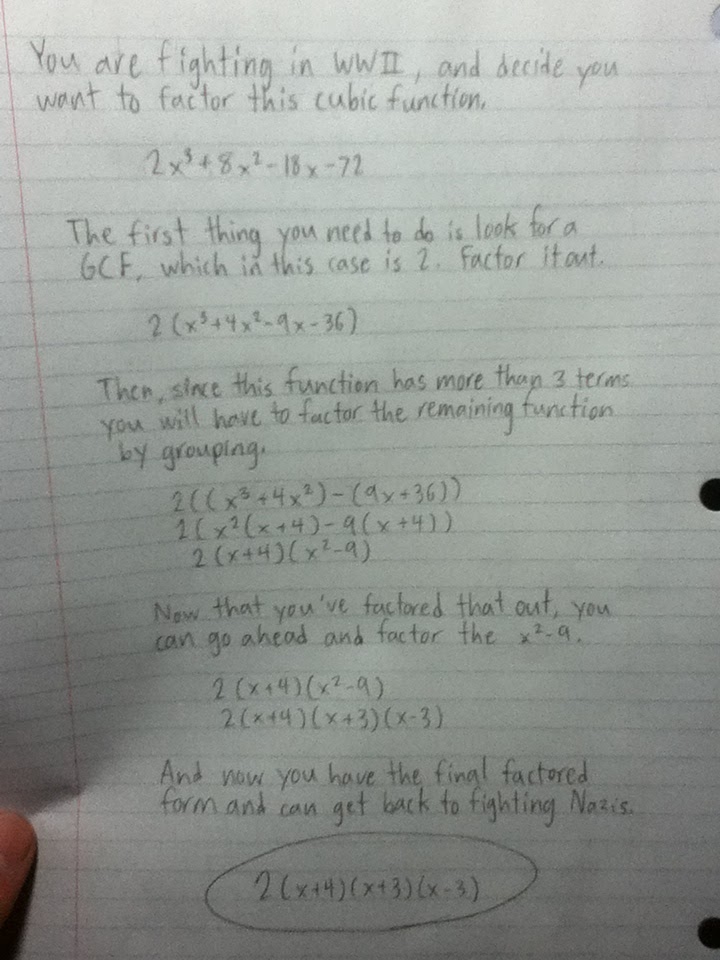 You are fighting in WWII, and decide you
want to factor this cubic function.
2x³+8x²-18x-72
The first thing you need to do is look for a
GCF, which in this case is 2. Factor it out.
2(x³+4x²-9x-36)
Then, since this function has more than 3 terms
you will have to factor the remaining function
by grouping.
2((x³+4x²)-(9x+36))
2(x²(x+4)-9(x+4))
2(x+4)(x²-9)
Now that you've factored that out, you
can go ahead and factor the x²-9.
2(x+4)(x²-9)
2(x+4)(x+3)(x-3)
And now you have the final factored
form and can get back to fighting Nazis.
2(x+4)(x+3)(x-3)